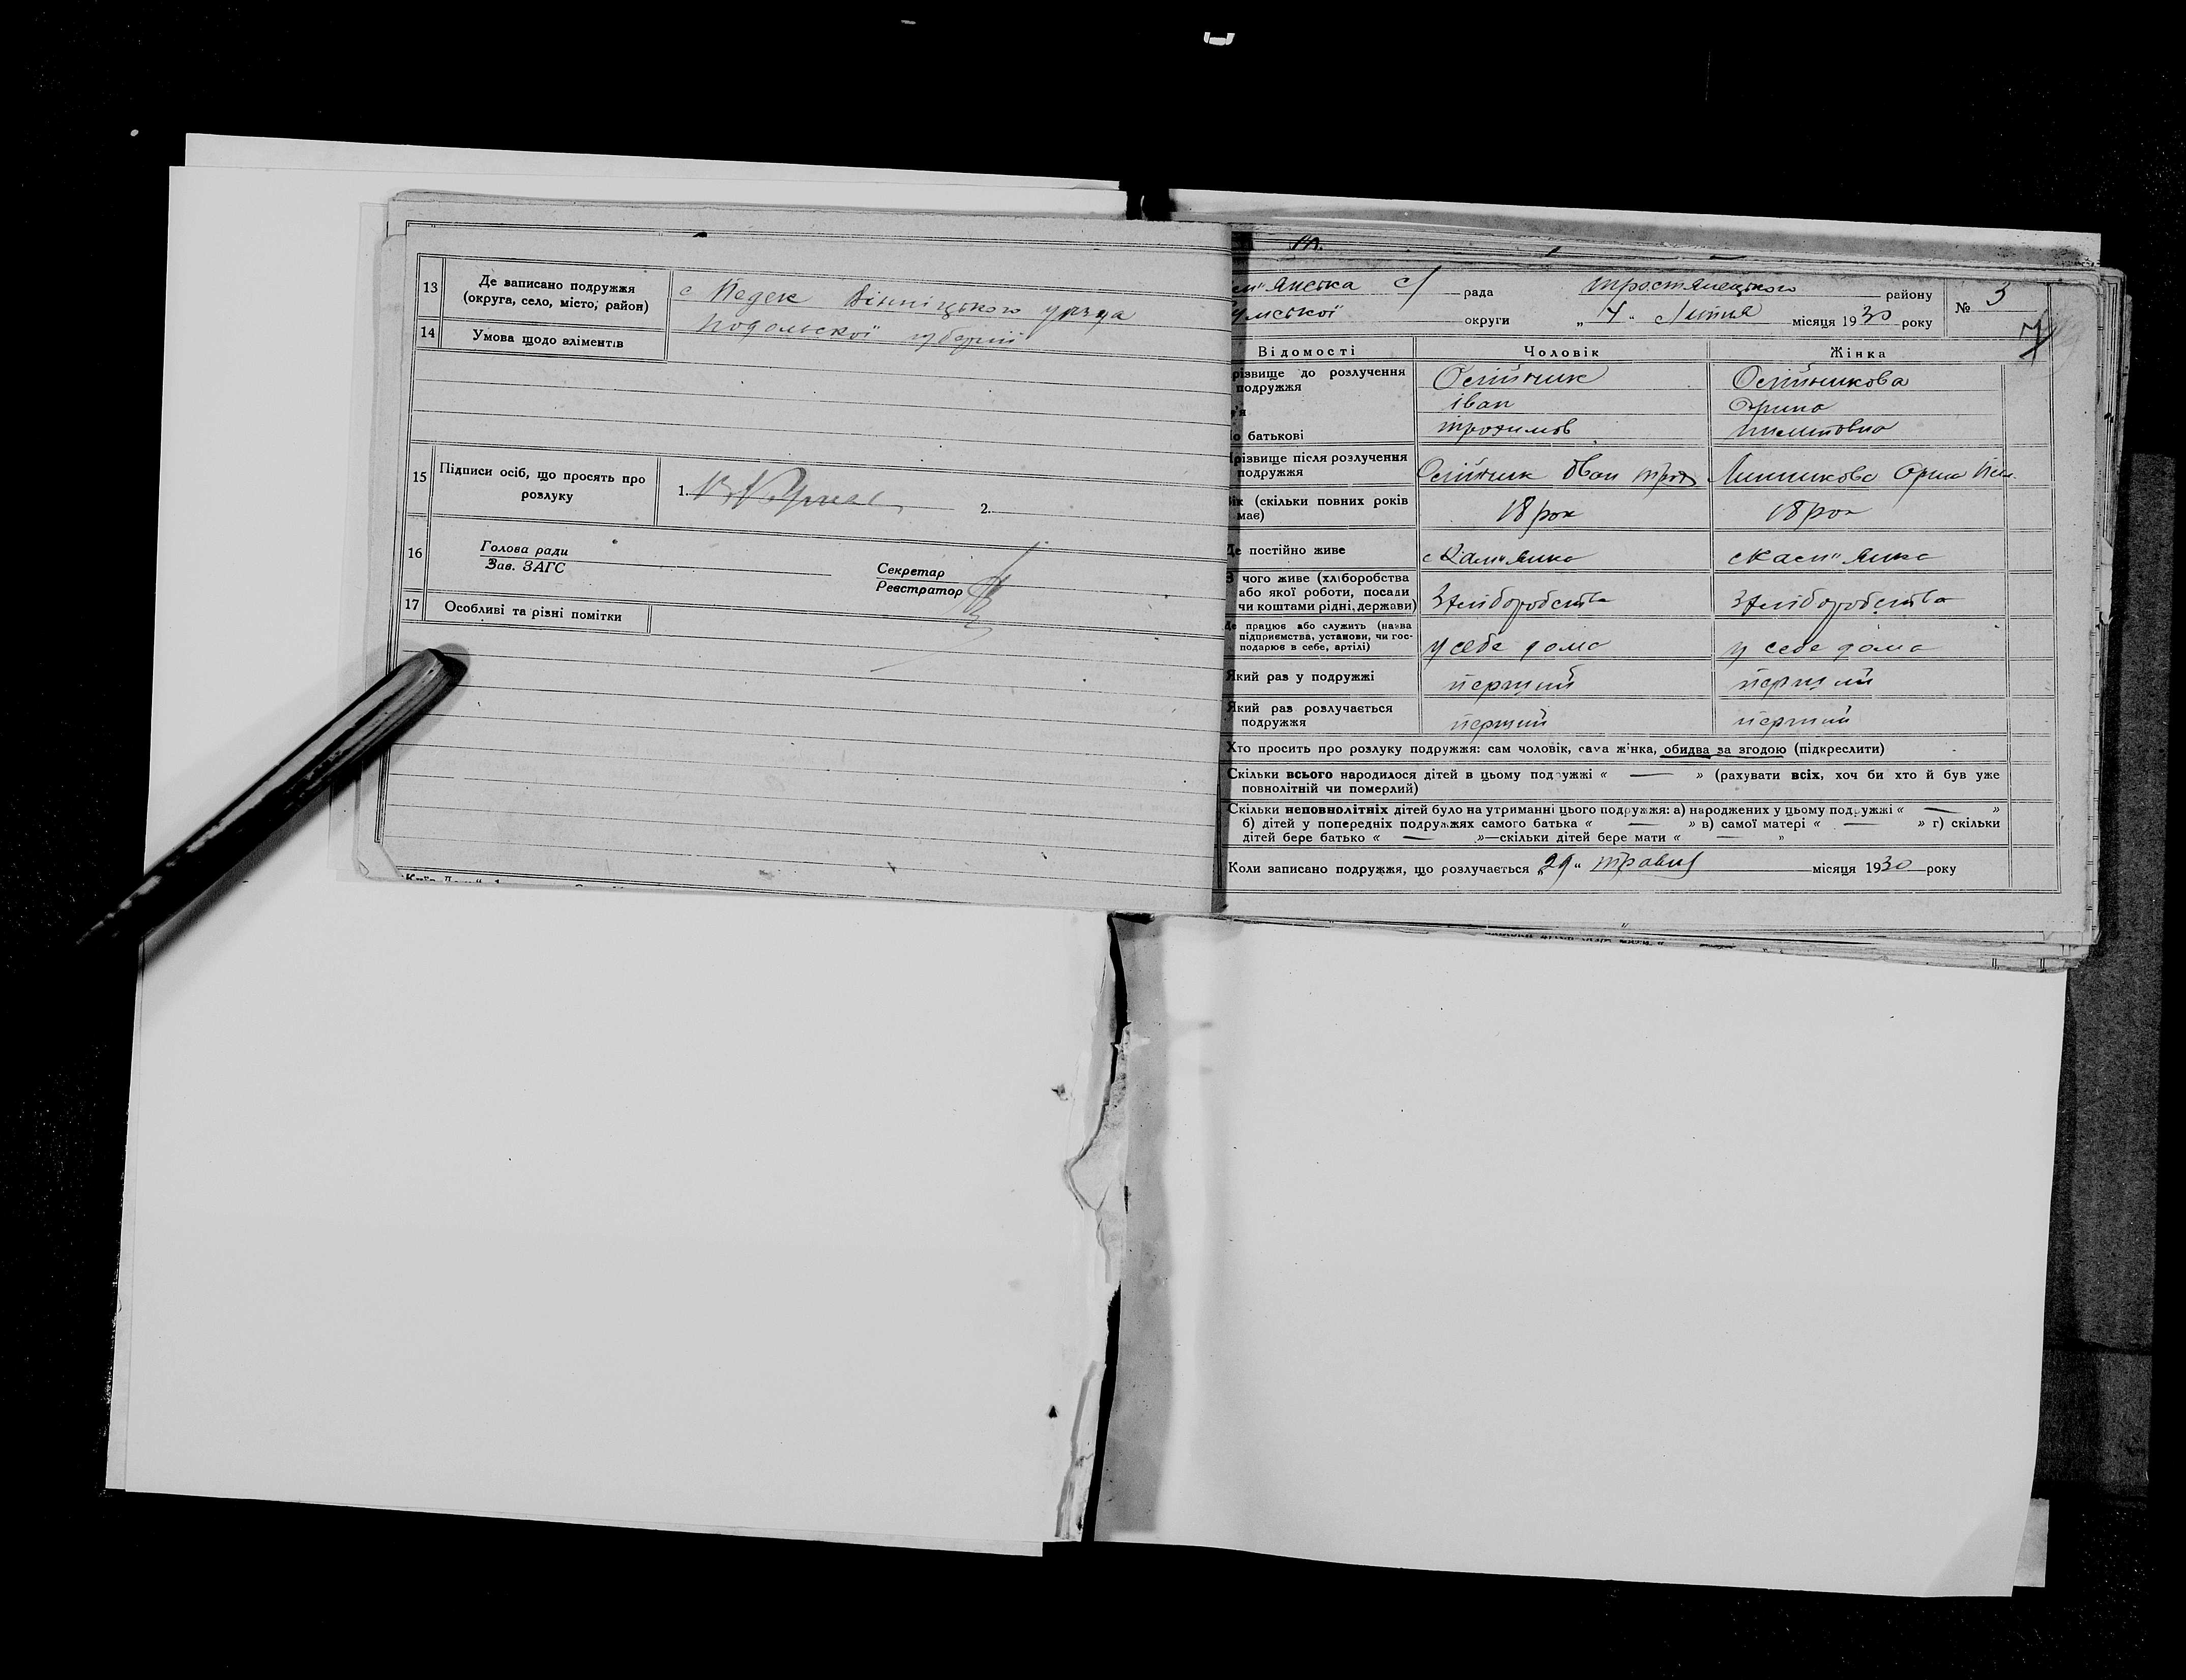 13 Де записано подружжя
(округа, село, місто, район)
с Педек Вінніцького уезда
Подольскої губернії
14 Умова щодо аліментів
15 Підписи осіб, що просять про
розлуку
1.
2.
16 Голова ради
Зав. ЗАГС
Секретар
Реєстратор
17 Особливі та різні помітки
янська с/ рада Тростянецького району № 3
умської округи „4" Липня місяця 1930 року
7
Відомості Чоловік Жінка
різвище до розлучення
подружжя
Олійник Олійникова
м'я Іван Орина
о батькові Трохимов Пилиповна
різвище після розлучення
подружжя
Олійник Іван Трох Линникова Орина Пил.
ік (скільки повних років
має)
18 рок 18 рок
е постійно живе с Кам"янка с Кам"янка
З чого живе (хліборобства
або якої роботи, посади
чи коштами рідні, держави)
З хліборобства З хліборобства
е працює або служить (назва
підприємства, установи, чи гос-
подарює в себе, артілі)
у себе дома у себе дома
Який раз у подружжі перший перший
Який раз розлучається
подружжя
перший перший
Хто просить про розлуку подружжя: сам чоловік, сама жінка, обидва за згодою (підкреслити)
Скільки всього народилося дітей в цьому подружжі « — » (рахувати всіх, хоч би хто й був уже
повнолітній чи померлий)
Скільки неповнолітніх дітей було на утриманні цього подружжя: а) народжених у цьому подружжі « — »
б) дітей у попередніх подружжях самого батька « — » в) самої матері « — » г) скільки
дітей бере батько « — »—скільки дітей бере мати « — »
Коли записано подружжя, що розлучається „29" травня місяця 1930 року